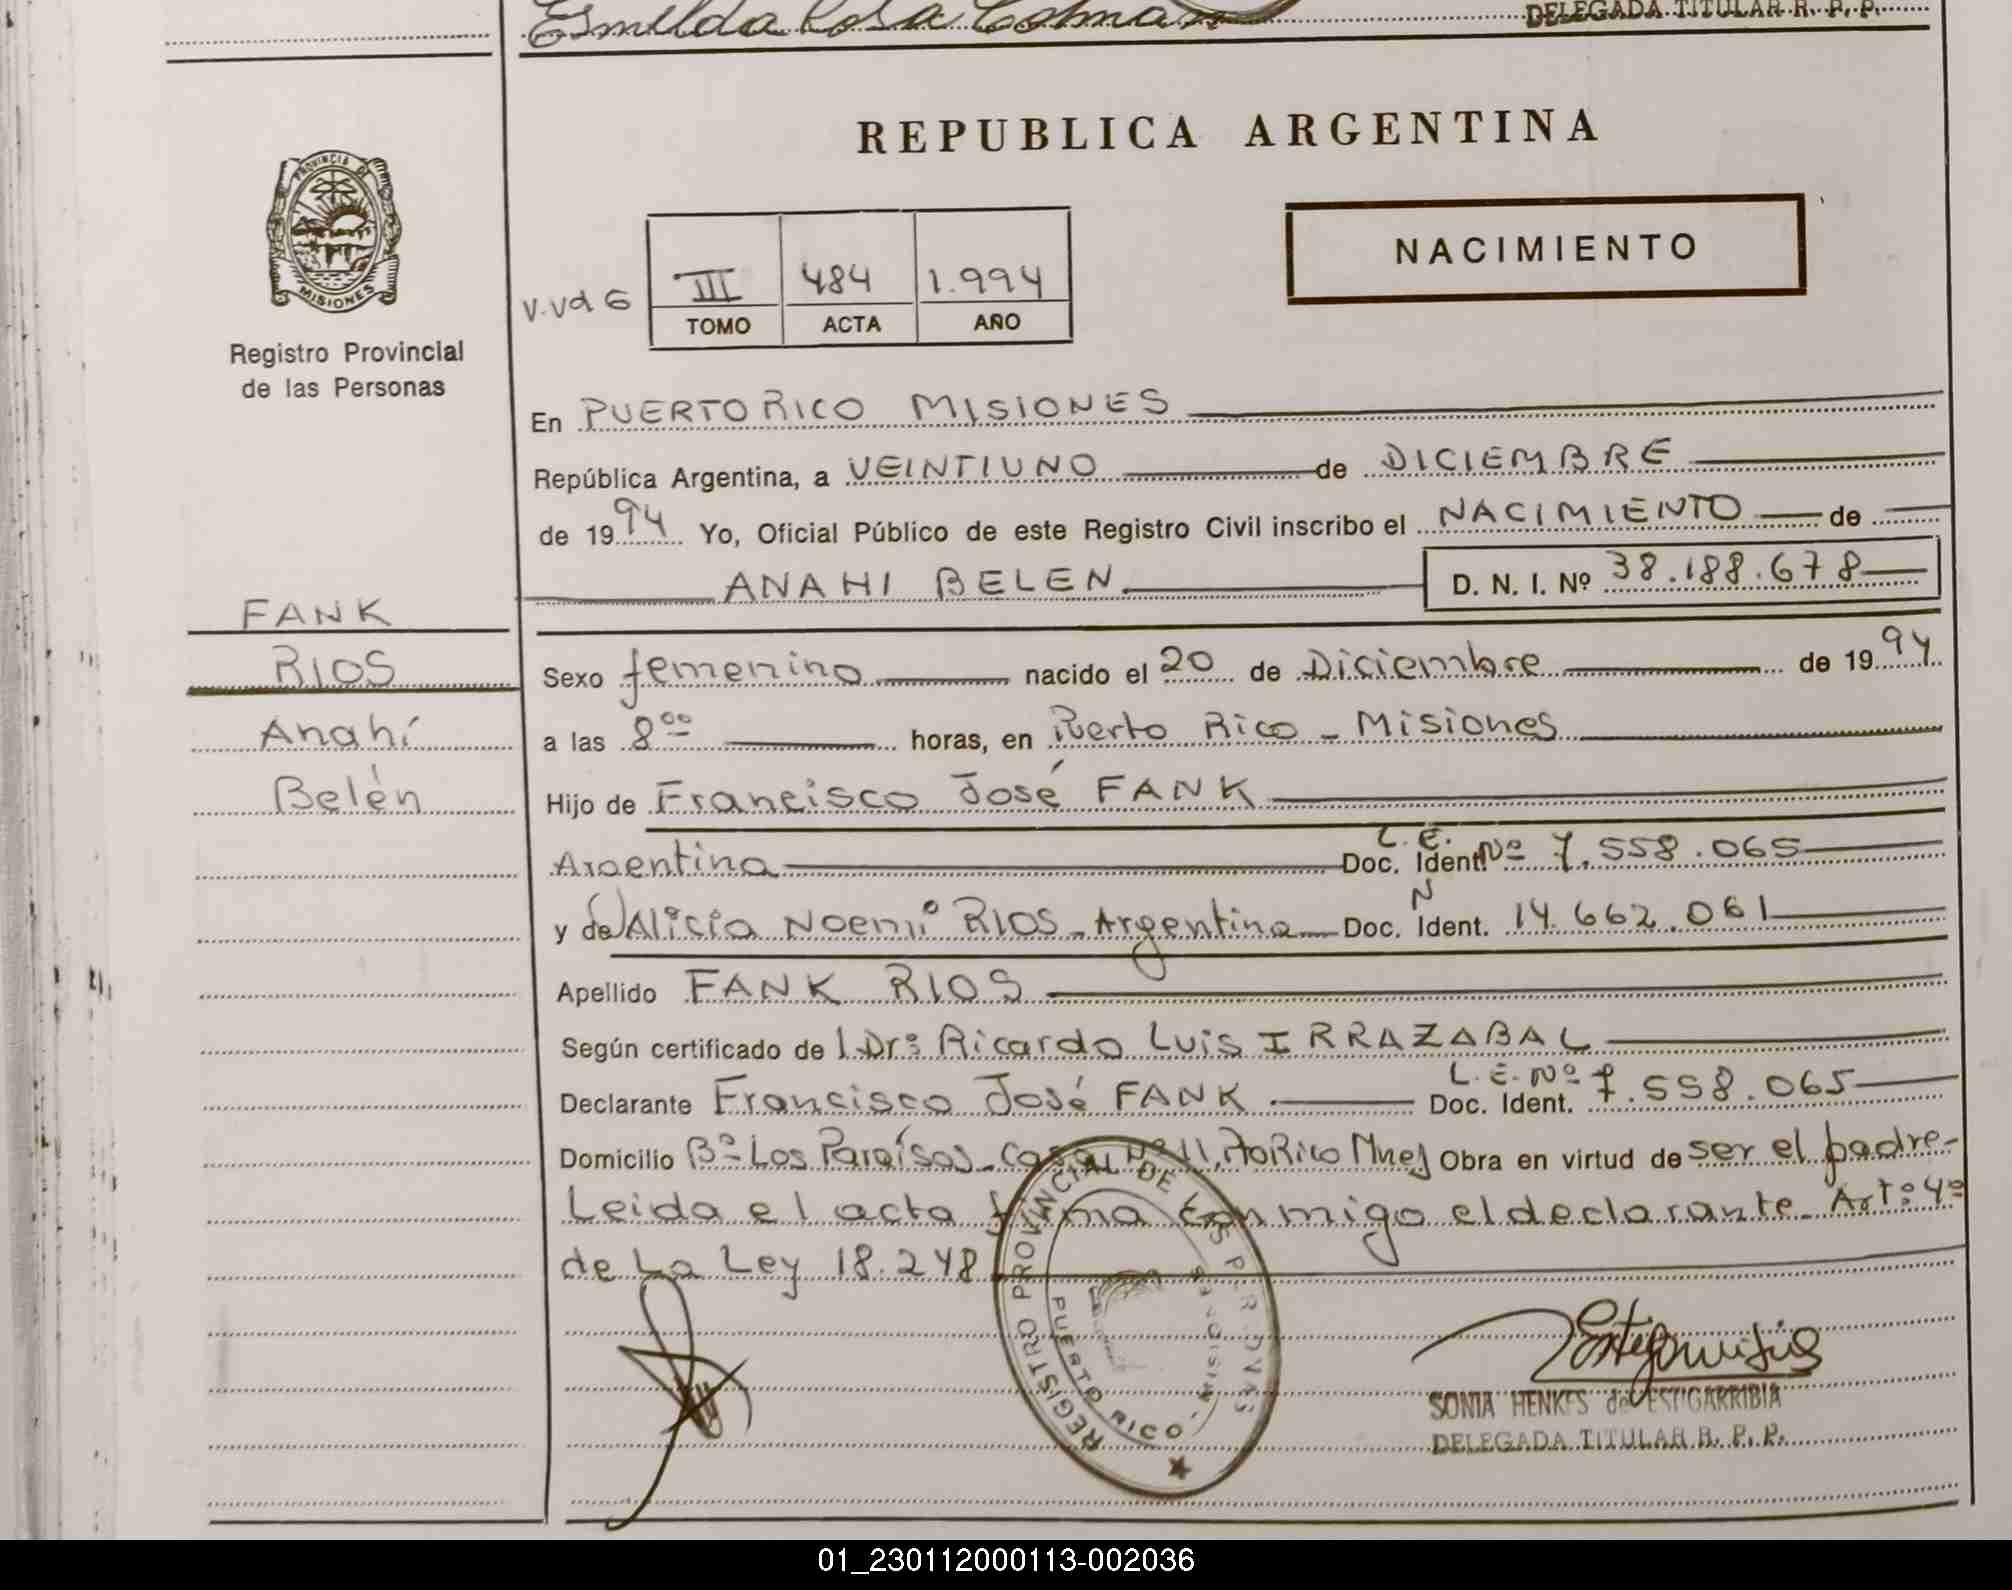 Esmelda Rosa Colman
DELEGADA TITULAR R. P. P.
REPUBLICA ARGENTINA
PROVINCIA DE
MISIONES
Registro Provincial
de las Personas
V.Vd 6
III 484 1.994
TOMO ACTA AÑO
NACIMIENTO
En PUERTO RICO MISIONES
República Argentina, a VEINTIUNO de DICIEMBRE
de 1994 Yo, Oficial Público de este Registro Civil inscribo el NACIMIENTO de
ANAHI BELEN D. N. I. Nº 38.188.678
FANK
RIOS
Anahí
Belén
Sexo femenino nacido el 20 de Diciembre de 1994
a las 8⁰⁰ horas, en Puerto Rico - Misiones
Hijo de Francisco José FANK
Argentina Doc. Ident. L.E. Nº 7.558.065
y de Alicia Noemí RIOS - Argentina Doc. N Ident. 14.662.061
Apellido FANK RIOS
Según certificado de l Dr: Ricardo Luis IRRAZABAL
Declarante Francisco José FANK Doc. Ident. L.E. Nº 7.558.065
Domicilio Bº Los Paraísos - Casa Nº 11, Pto Rico Mnes Obra en virtud de ser el padre-
Leida el acta firma conmigo el declarante - Artº 4º
de La Ley 18.248
REGISTRO PROVINCIAL DE LAS PERSONAS
PUERTO RICO - MISIONES
SONIA HENKES de ESTIGARRIBIA
DELEGADA TITULAR R. P. P.
01_230112000113-002036